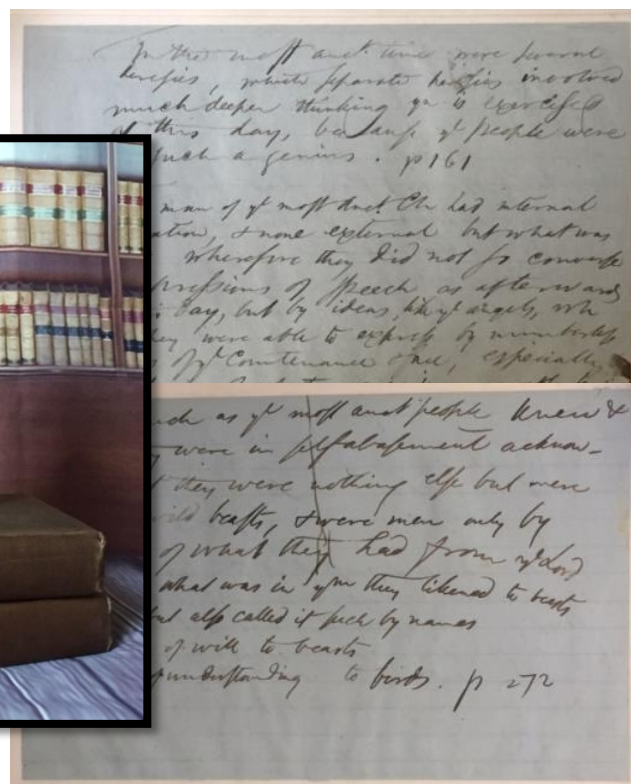 In that most anct. time were several
heresies, which separate heresies involved
much deeper thinking yn is exercised
at this day, because ye people were
such a genius. p 161
man of ye most Anct Ch had internal
ation, & none external but what was
wherefore they did not so converse
pressions of speech as afterwards
day, but by ideas, like ye angels, wh
hey were able to express by numberless
of ye Countenance & face, especially
ch as ye most anct people knew &
were in selfabasement acknow-
they were nothing else but mere
wild beasts, & were men only by
of what they had from ye Lord
what was in ym they likened to beasts
but also called it such by names
of will to beasts
understanding to birds. p 272